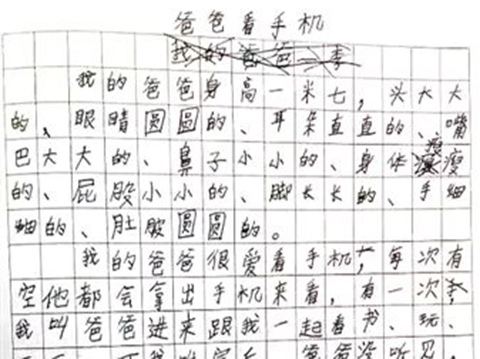 爸爸看手机
我的爸爸
我的爸爸身高一米七，头大大
的、眼睛圆圆的、耳朵直直的、嘴
巴大大的、鼻子小小的、身体瘦瘦
的、屁股小小的、脚长长的、手细
细的、肚脐圆圆的。
我的爸爸很爱看手机，每次有
空他都会拿出手机来看，有一次，
我叫爸爸进来跟我一起看书、玩、
爸爸没听见